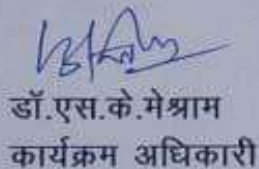 डॉ.एस.के.मेश्राम
कार्यक्रम अधिकारी